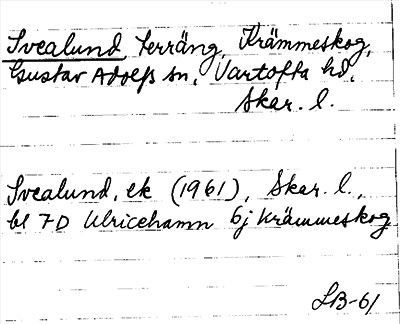 Svealund, Terräng, Krämmeskog,
Gustav Adolfs sn, Vartofta hd,
Skar. l.
Svealund, ek (1961), Skar. l.,
bl 7D Ulricehamn 6j Krämmeskog
LB-61